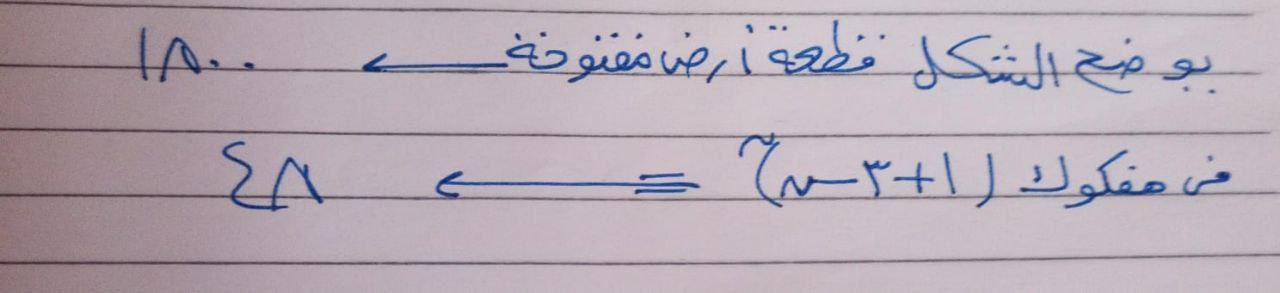 يوضح الشكل قطعة أرض مفتوحة ← ١٨٠٠
فى مفكوك (١+٣س)ⁿ = ← ٤٨